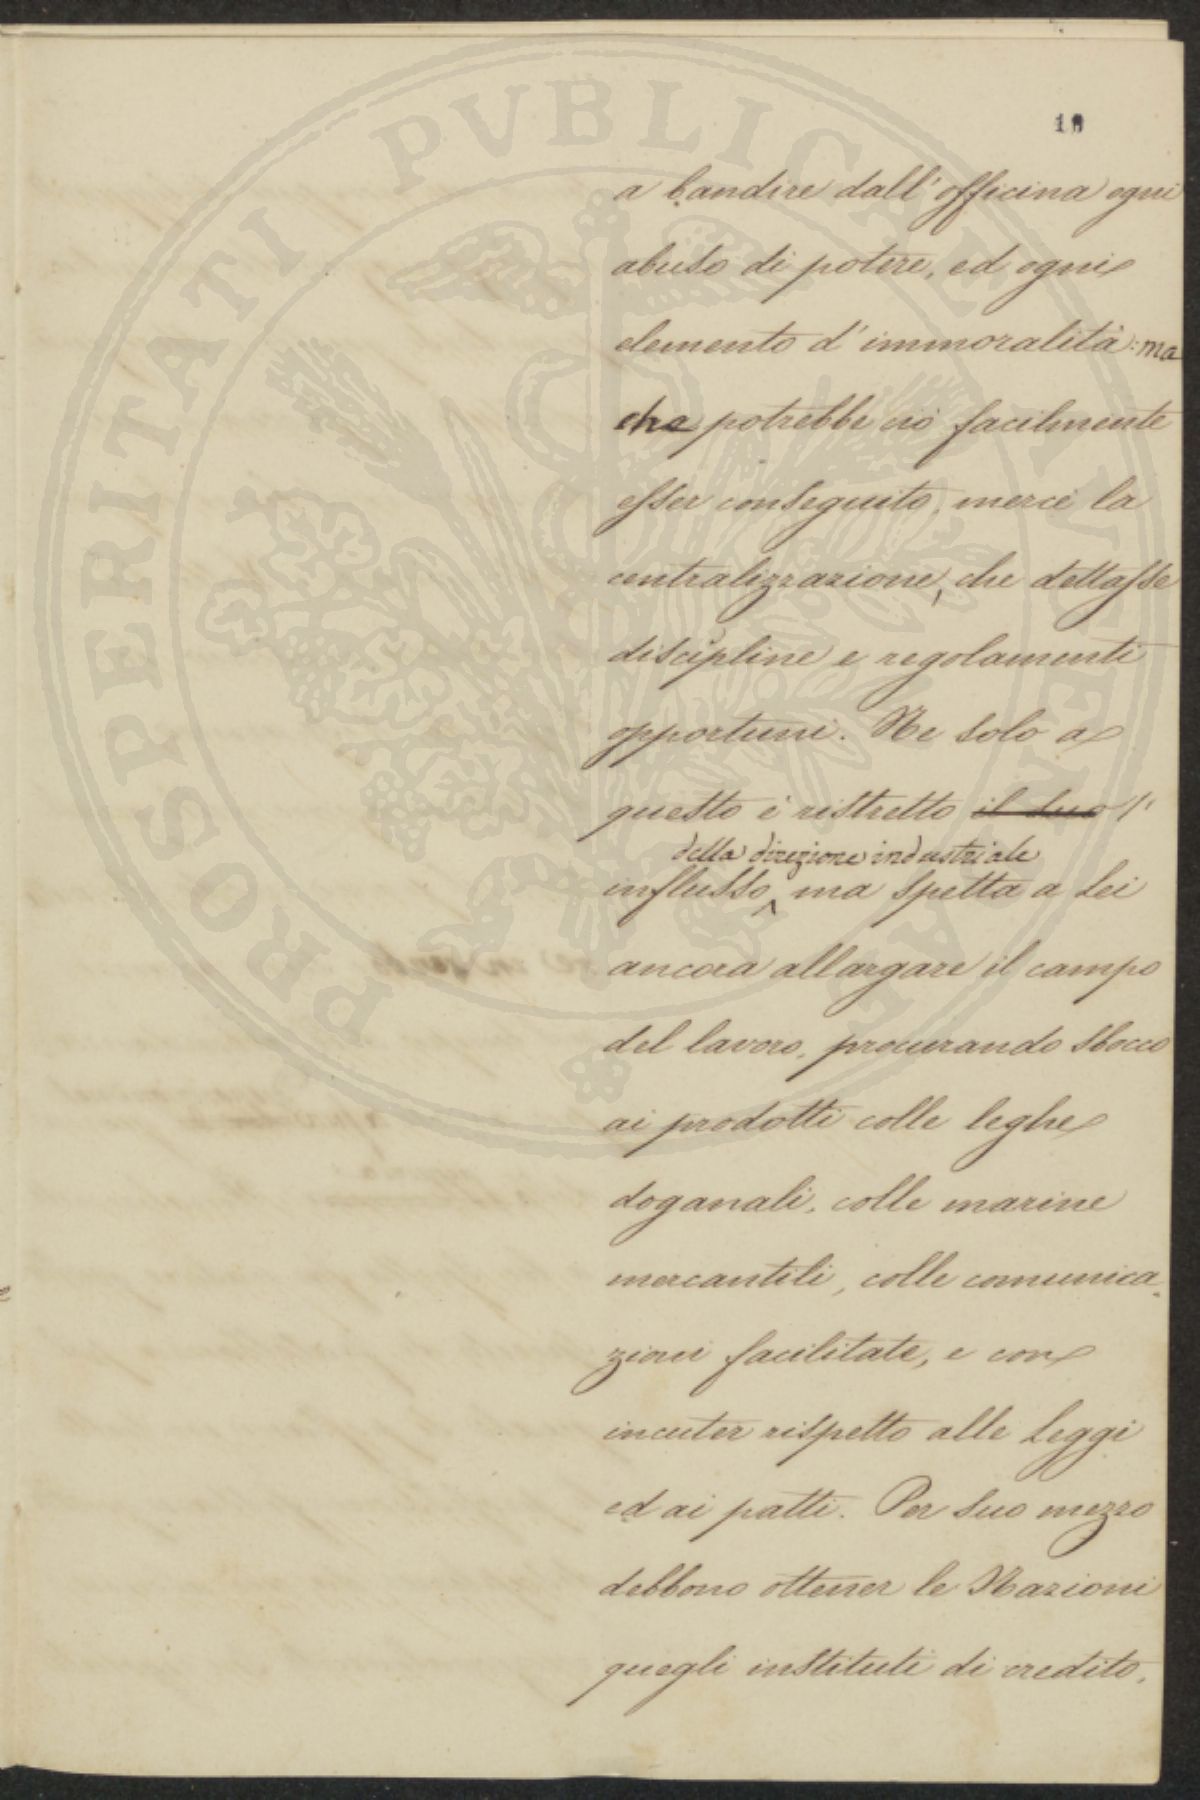 PROSPERITATI PVBLICAE
10
a bandire dall'officina ogni
abuso di potere, ed ogni
elemento d'immoralità: ma
che potrebbe ciò facilmente
esser conseguito, mercè la
centralizzazione, che dettasse
discipline e regolamenti
opportuni. Ne solo a
questo è ristretto il suo l'
della direzione industriale
influsso, ma spetta a Lei
ancora allargare il campo
del lavoro, procurando sbocco
ai prodotti colle leghe
doganali, colle marine
mercantili, colle comunica
zioni facilitate, e con
incuter rispetto alle Leggi
ed ai patti. Per suo mezzo
debbono ottener le Nazioni
quegli instituti di credito,